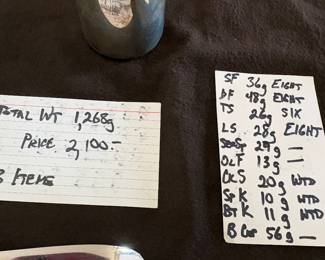 TOTAL WT 1,268g
PRICE 2,100-
3 ITEMS
SF 36g EIGHT
DF 48g EIGHT
TS 26g SIX
LS 28g EIGHT
27g —
OLF 13g —
CLS 20g WTD
SPK 10g WTD
BTK 11g WTD
B COW 56g —